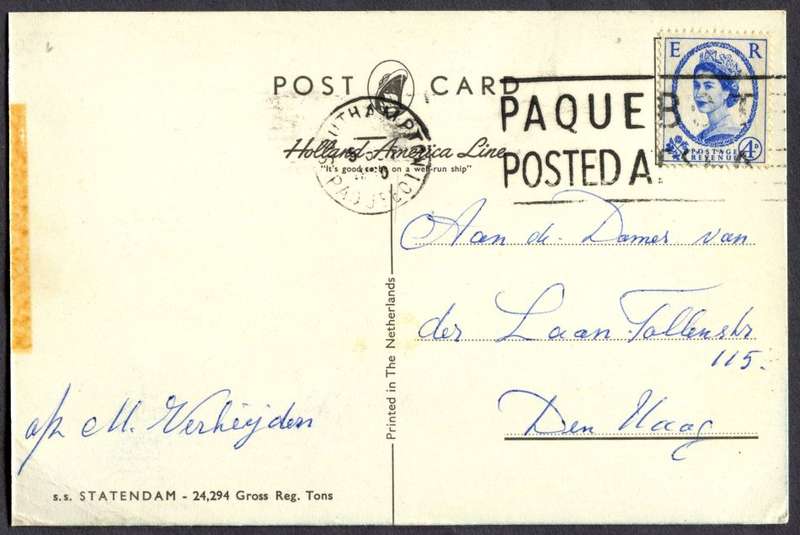 POST CARD
E R
PAQUEBOT
POSTED A
POSTAGE
REVENUE
4D
SOUTHAMPTON
Holland America Line
"It's good to be on a well-run ship"
Aan de Dames van
der Laan. Tollenstr
115.
Den Haag
Printed in The Netherlands
M. Verheijden
s.s. STATENDAM - 24,294 Gross Reg. Tons